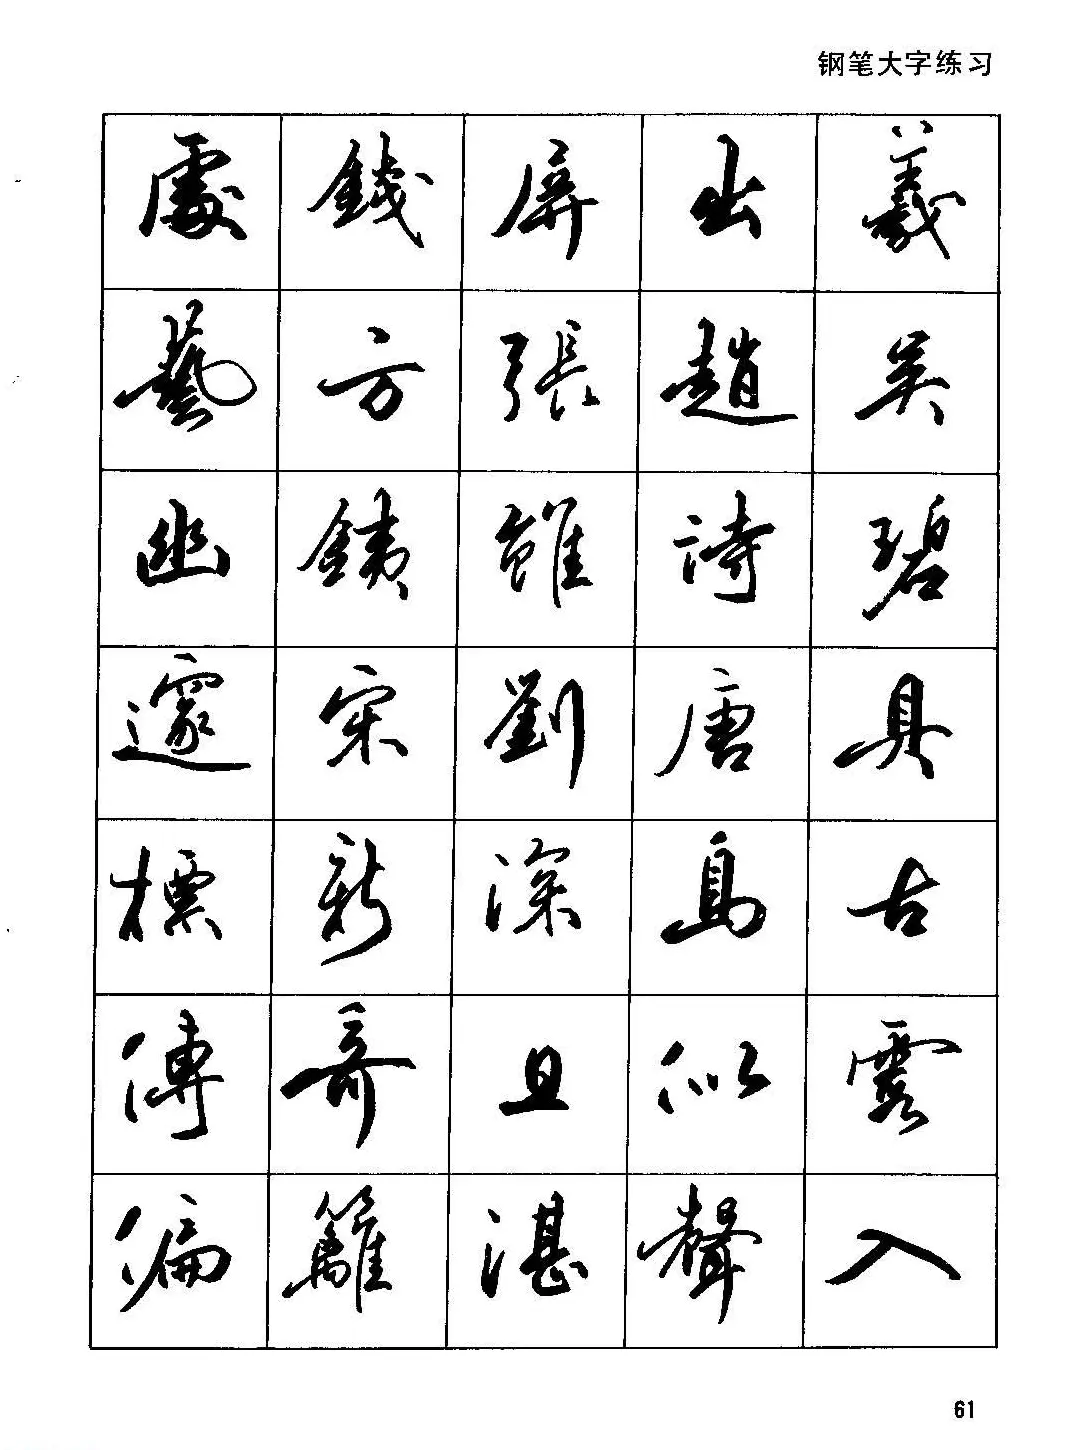 钢笔大字练习
處 錢 屏 出 羲
藝 方 張 趙 吴
幽 銕 雖 詩 碧
邃 宋 劉 唐 具
標 新 深 島 古
傳 奇 且 似 露
偏 籬 湛 聲 入
61